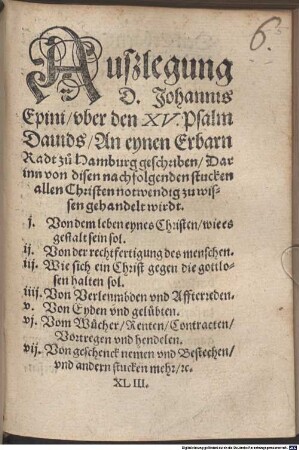 6.
Außlegung
D. Johannis
Epini / vber den XV. Psalm
Dauids / An eynen Erbarn
Radt zů Hamburg geschriben / Dar
inn von disen nachfolgenden stucken
allen Christen notwendig zu wis-
sen gehandelt wirdt.
j. Von dem leben eynes Christen / wie es
gestalt sein sol.
ij. Von der rechtfertigung des menschen.
iij. Wie sich ein Christ gegen die gottlo-
sen halten sol.
iiij. Von Verleumbden vnd Affterreden.
v. Von Eyden vnd gelübten.
vj. Vom Wůcher / Renten / Contracten /
Vortregen vnd hendelen.
vij. Von geschenck nemen vnd Bestechen /
vnd andern stucken mehr / ꝛc.
XLIII.